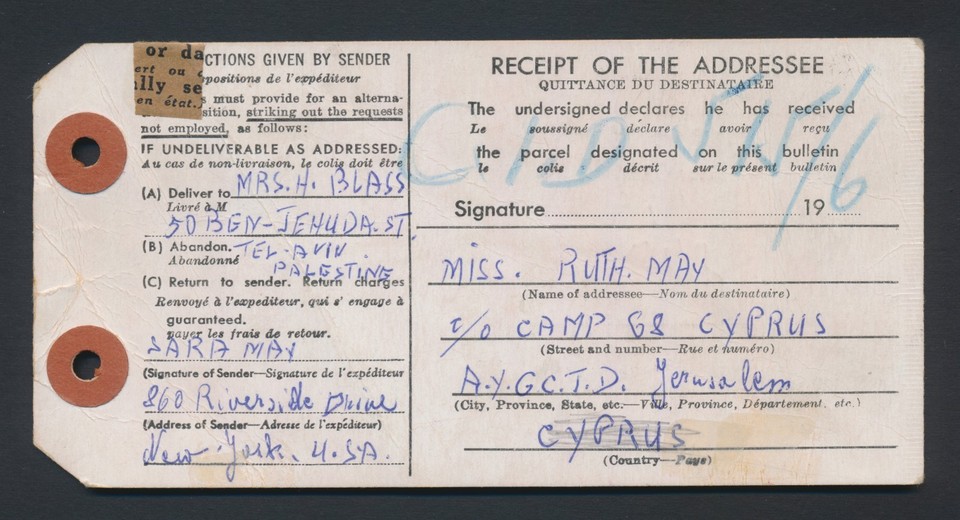 or da
ert ou
lly se
en état.
CTIONS GIVEN BY SENDER
spositions de l'expéditeur
s must provide for an alterna-
sition, striking out the requests
not employed, as follows:
IF UNDELIVERABLE AS ADDRESSED:
Au cas de non-livraison, le colis doit être
(A) Deliver to MRS. H. BLASS
Livré à M
50 BEN-JEHUDA. ST.
(B) Abandon. TEL-AVIV.
Abandonné
PALESTINE
(C) Return to sender. Return charges
Renvoyé à l'expediteur, qui s'engage à
guaranteed.
payer les frais de retour.
SARA MAY
(Signature of Sender—Signature de l'expéditeur
860 Riverside Drive
(Address of Sender—Adresse de l'expéditeur)
New-York. U.SA.
RECEIPT OF THE ADDRESSEE
QUITTANCE DU DESTINATAIRE
The undersigned declares he has received
Le soussigné déclare avoir reçu
the parcel designated on this bulletin
le colis décrit sur le présent bulletin
Signature 19
MISS. RUTH. MAY
(Name of addressee—Nom du destinataire)
c/o CAMP 68 CYPRUS
(Street and number—Rue et numéro)
A.Y.G.C.J.D. Jerusalem
(City, Province, State, etc.—Ville, Province, Département, etc.)
CYPRUS
(Country—Pays)